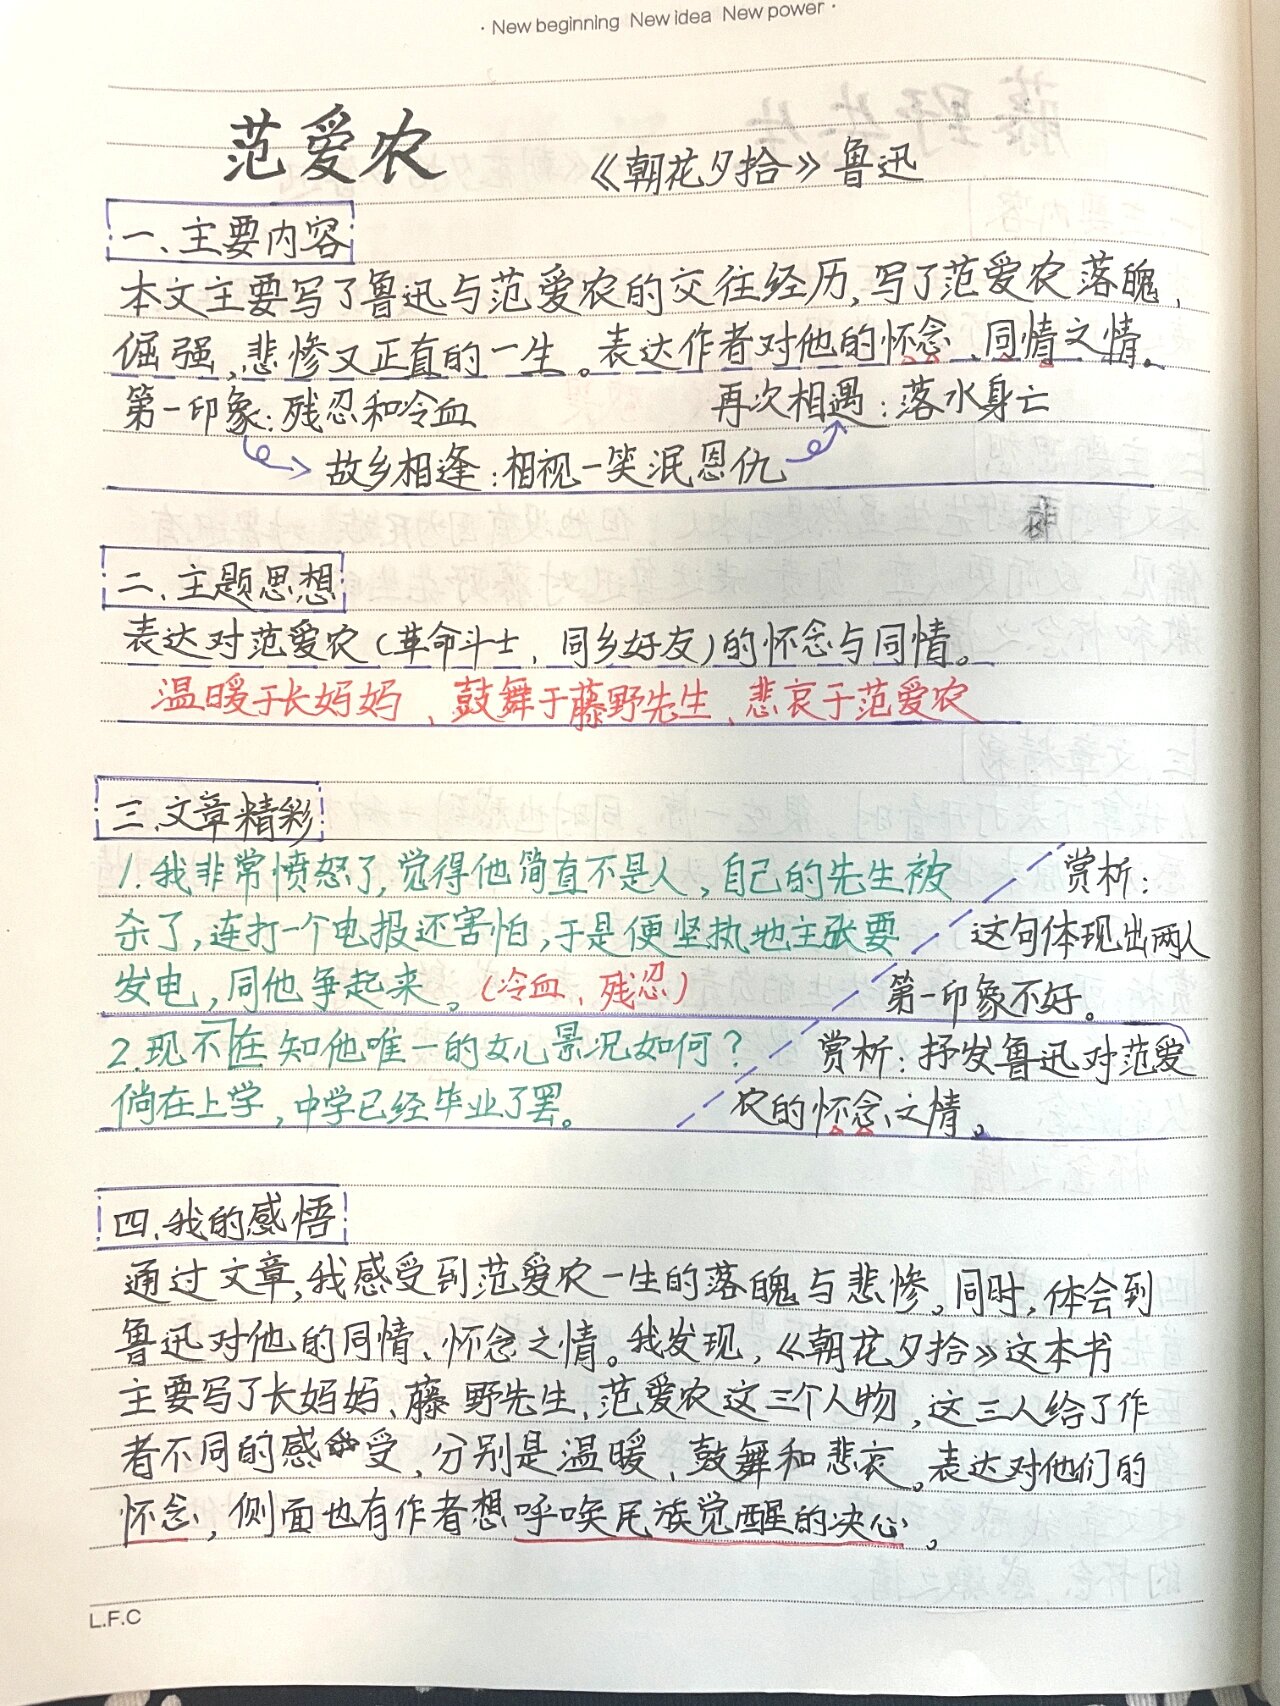 · New beginning New idea New power ·
范爱农
《朝花夕拾》鲁迅
一、主要内容
本文主要写了鲁迅与范爱农的交往经历,写了范爱农落魄、
倔强、悲惨又正直的一生。表达作者对他的怀念、同情之情。
第一印象:残忍和冷血 再次相遇:落水身亡
故乡相逢:相视一笑泯恩仇
二、主题思想
表达对范爱农(革命斗士、同乡好友)的怀念与同情。
温暖于长妈妈、鼓舞于藤野先生、悲哀于范爱农
三.文章精彩
1.我非常愤怒了,觉得他简直不是人,自己的先生被
杀了,连打一个电报还害怕,于是便坚执地主张要
发电,同他争起来。(冷血、残忍)
赏析:
这句体现出两人
第一印象不好。
2.现不在知他唯一的女儿景况如何?
倘在上学,中学已经毕业了罢。
赏析:抒发鲁迅对范爱
农的怀念之情。
四.我的感悟
通过文章,我感受到范爱农一生的落魄与悲惨。同时,体会到
鲁迅对他的同情、怀念之情。我发现,《朝花夕拾》这本书
主要写了长妈妈、藤野先生、范爱农这三个人物,这三人给了作
者不同的感受,分别是温暖、鼓舞和悲哀。表达对他们的
怀念,侧面也有作者想呼唤民族觉醒的决心。
L.F.C